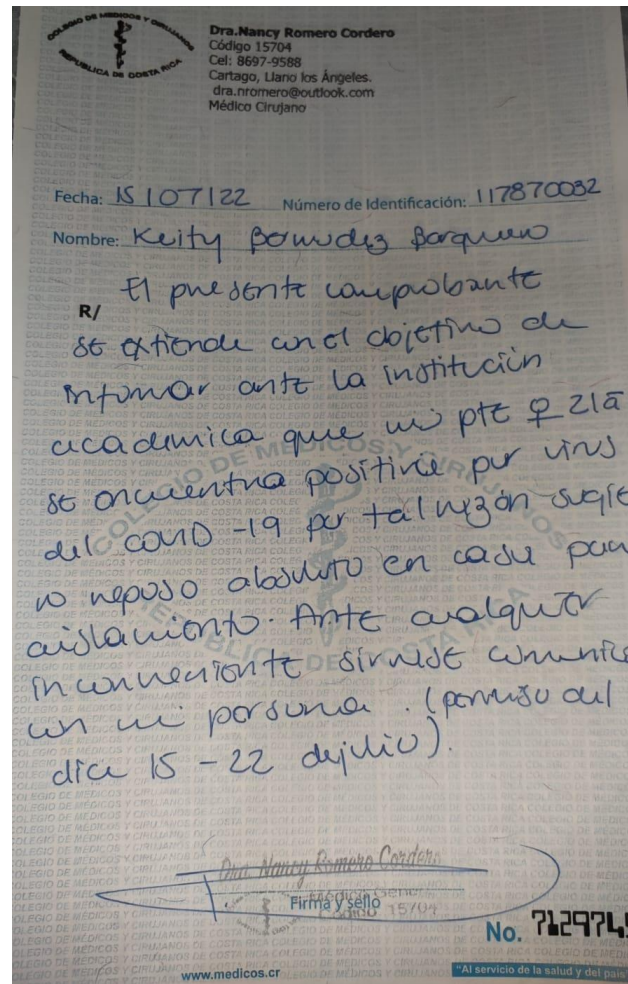 COLEGIO DE MEDICOS Y CIRUJANOS
REPUBLICA DE COSTA RICA
Dra.Nancy Romero Cordero
Código 15704
Cel: 8697-9588
Cartago, Llano los Ángeles.
dra.nromero@outlook.com
Médico Cirujano
Fecha: 15/07/22 Número de Identificación: 117870032
Nombre: Keity Bermudez Barquero
El presente comprobante
R/
se extiende con el objetivo de
informar ante la institución
academica que mi pte ♀ 21a
se encuentra positiva por virus
del COVID-19 por tal razón sugie
ro reposo absoluto en casa para
aislamiento. Ante cualquier
inconveniente sirvase comunica
con mi persona. (permiso del
dia 15 - 22 de julio).
Dra. Nancy Romero Cordero
Médico General
Código 15704
Firma y sello
No. 7129749
www.medicos.cr
"Al servicio de la salud y del país"
COLEGIO DE MEDICOS Y CIRUJANOS
REPUBLICA DE COSTA RICA